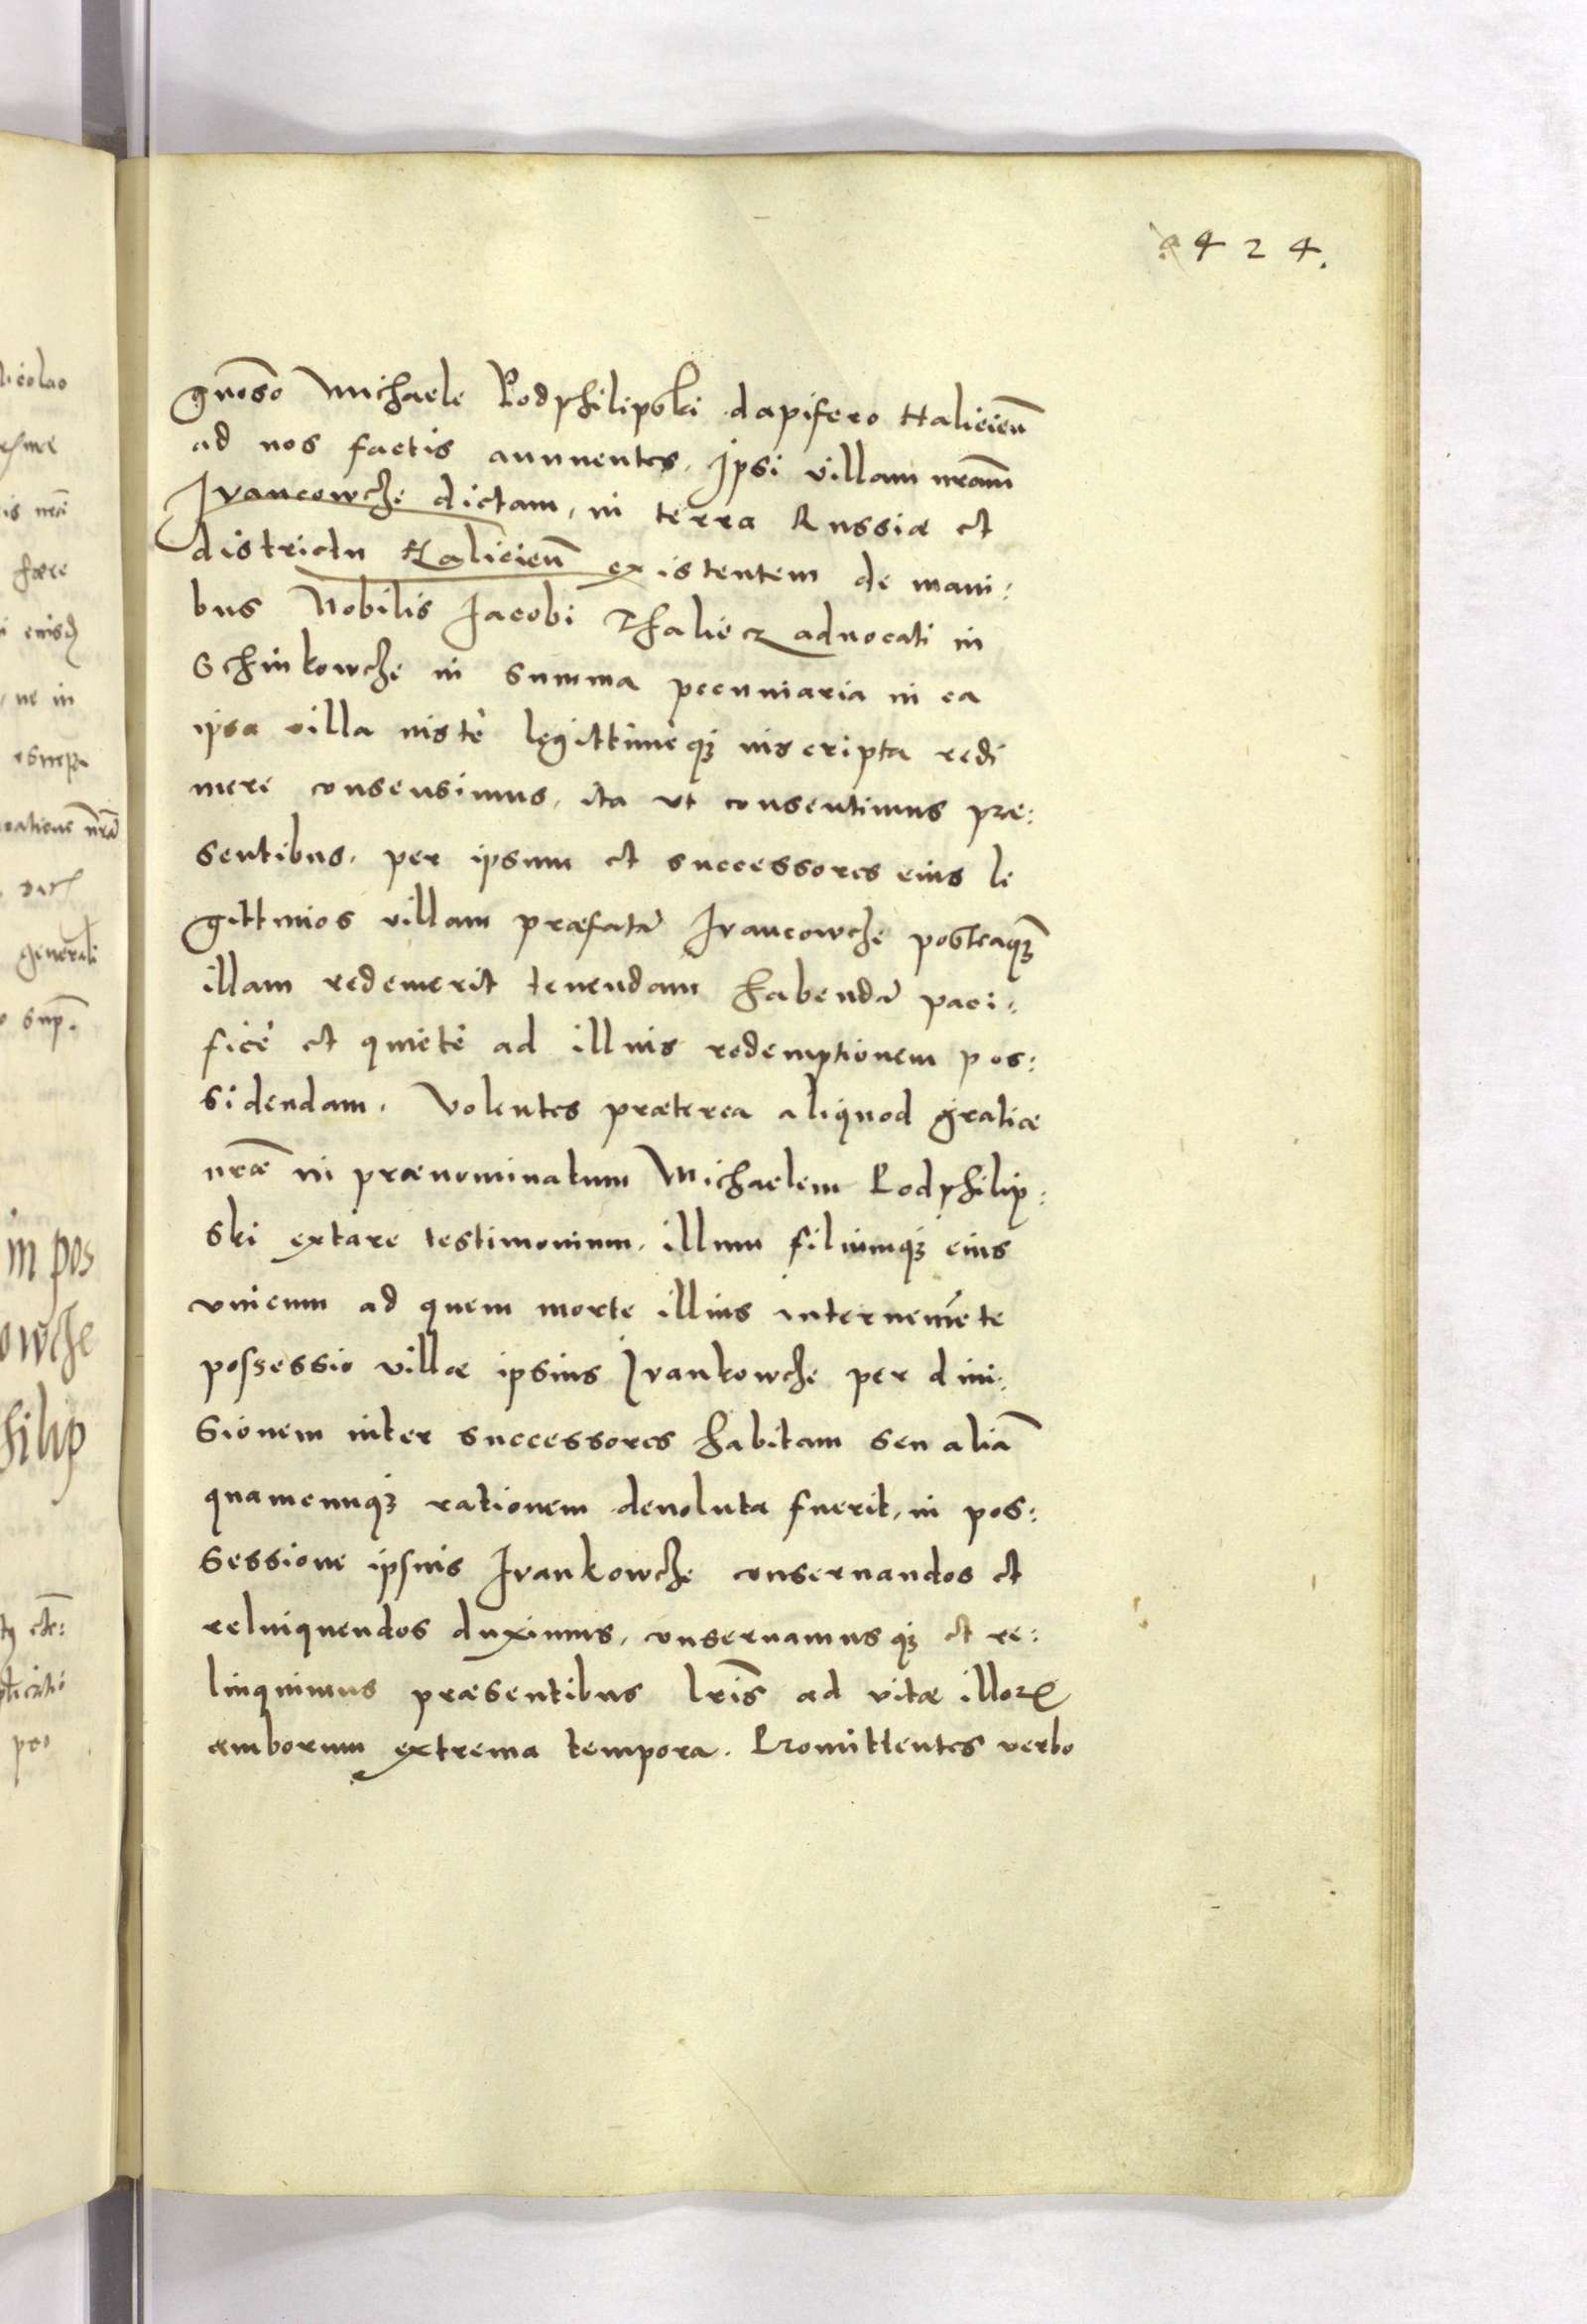 424.
gnoso Michaele Podphilipski dapifero Halicieñ
ad nos factis annuentes, Ipsi villam nrãm
Ivancowche dictam, in terra Russiæ et
districtu Halicieñ existentem de mani:
bus Nobilis Jacobi Thalicz aduocati in
Schinkowche in summa pecuniaria in ea
ipsa villa iustè legittimèq3 inscripta redi
mere consensimus, ita vt consentimus præ:
sentibus, per ipsum et successores eius le
gittimos villam præfatã Ivancowche posteaq3
illam redemerit tenendam habendã paci:
ficè et quietè ad illius redemptionem pos:
sidendam. Volentes præterea aliquod gratiæ
nræ in prænominatum Michaelem Podphilip:
ski extare testimonium, illum filiumq3 eius
vnicum ad quem morte illius interueniẽte
possessio villæ ipsius Ivankowche per diui:
sionem inter successores habitam seu aliã
quamcunq3 rationem deuoluta fuerit, in pos:
sessione ipsius Ivankowche conseruandos et
relinquendos duximus, conseruamusq3 et re:
linquimus præsentibus lrĩs ad vitæ illorꝝ
amborum extrema tempora. Promittentes verbo